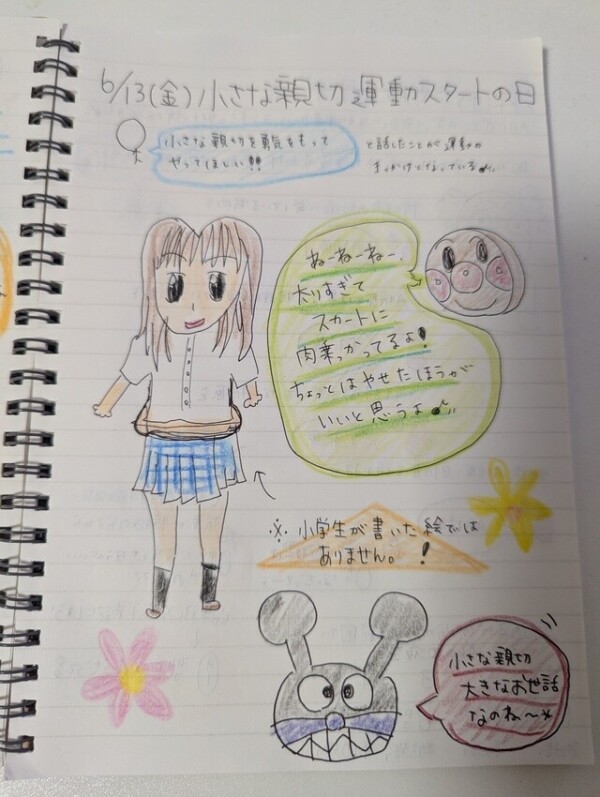 6/13(金)小さな親切運動スタートの日
小さな親切を勇気をもって
やってほしい!!
と話したことが運動の
きっかけとなっている
ねーねーねー、
太りすぎて
スカートに
肉乗っかってるよ!
ちょっとはやせたほうが
いいと思うよ
※ 小学生が書いた絵では
ありません。!
小さな親切
大きなお世話
なのね〜